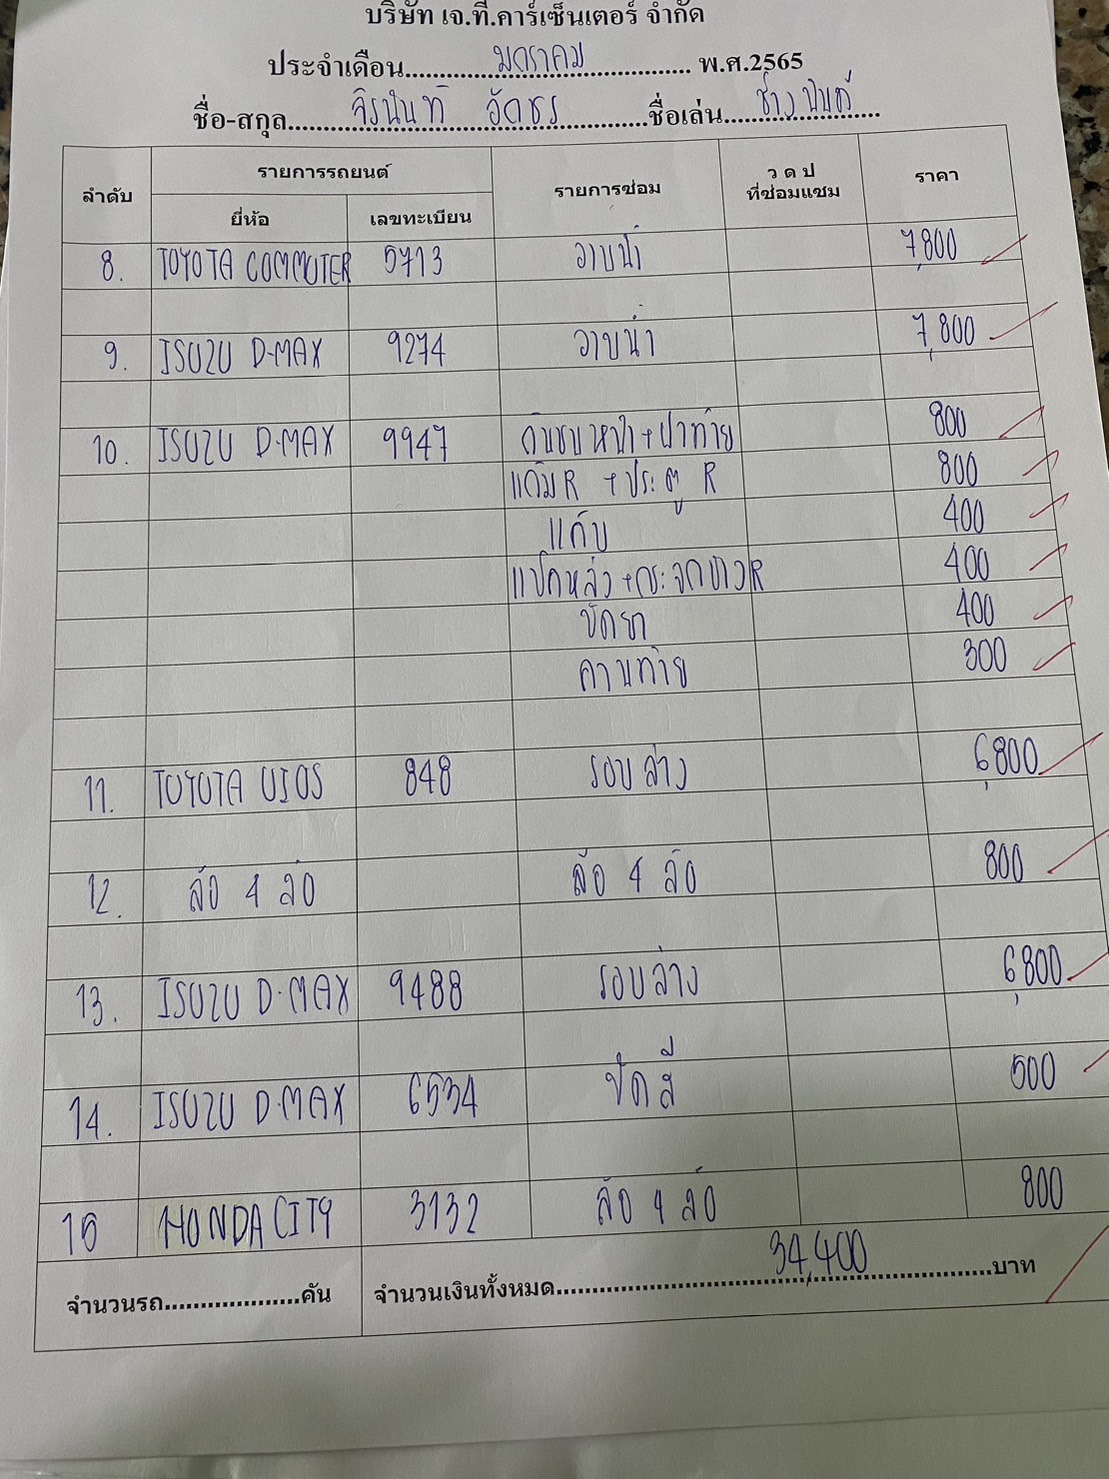 บริษัท เจ.ที.คาร์เซ็นเตอร์ จำกัด
ประจำเดือน มกราคม พ.ศ.2565
ชื่อ-สกุล จิรนันท์ อัดชร ชื่อเล่น ช่างนันท์
ลำดับ รายการรถยนต์ รายการซ่อม ว ด ป ที่ซ่อมแซม ราคา
ยี่ห้อ เลขทะเบียน
8. TOYOTA COMMUTER 5713 อาบน้ำ 7,800
9. ISUZU D-MAX 9274 อาบน้ำ 7,800
10. ISUZU D-MAX 9947 กันชนหน้า+ฝาท้าย 800
แก้ม R + ประตู R 800
แค๊บ 400
แป๊กหลัง+กระจกขาว R 400
ขัดยา 400
คานท้าย 300
11. TOYOTA VIOS 848 รอบล่าง 6,800
12. ล้อ 4 ล้อ ล้อ 4 ล้อ 800
13. ISUZU D-MAX 9488 รอบล่าง 6,800
14. ISUZU D-MAX 6534 ขัดสี 500
15 HONDA CITY 3132 ล้อ 4 ล้อ 800
จำนวนรถ....................คัน จำนวนเงินทั้งหมด 34,400 บาท